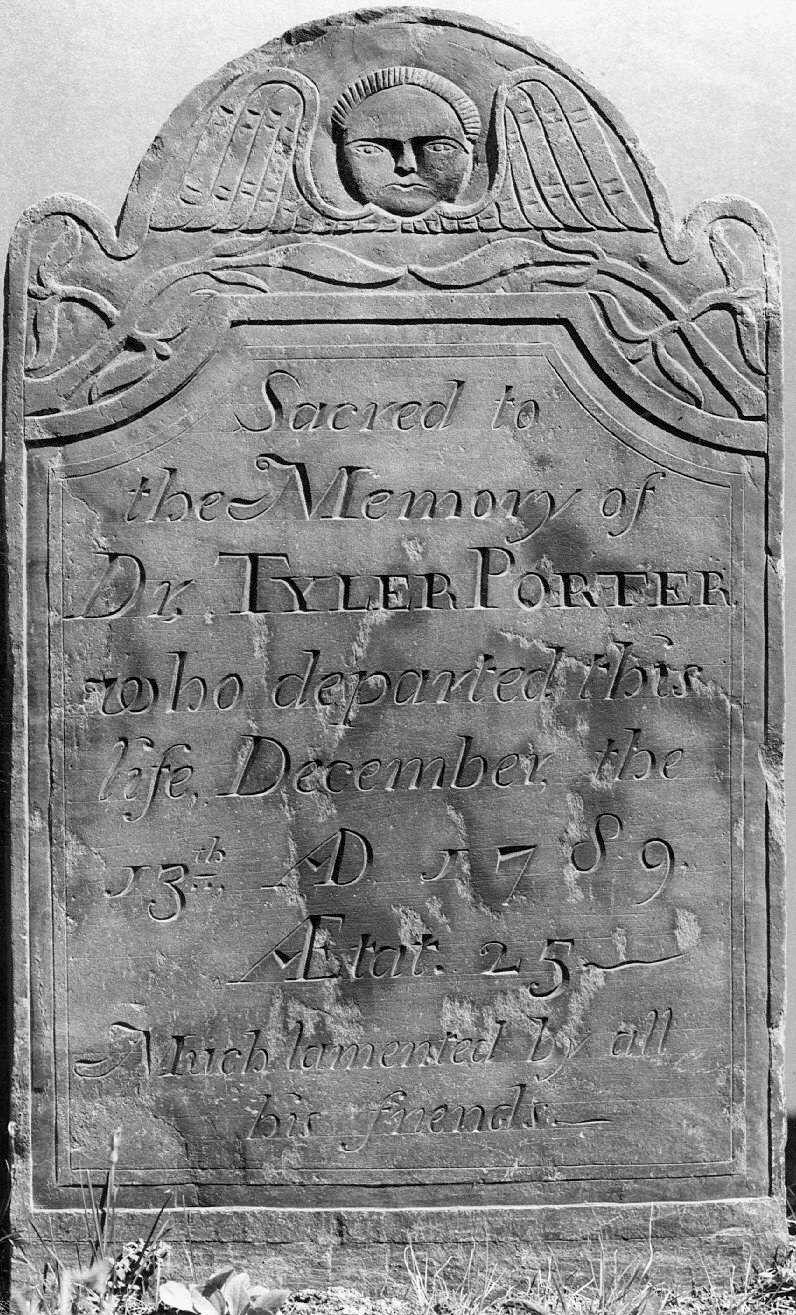 Sacred to
the Memory of
Dr. TYLER PORTER
who departed this
life, December, the
13th. AD 1789
Ætat. 25
Much lamented by all
his friends.